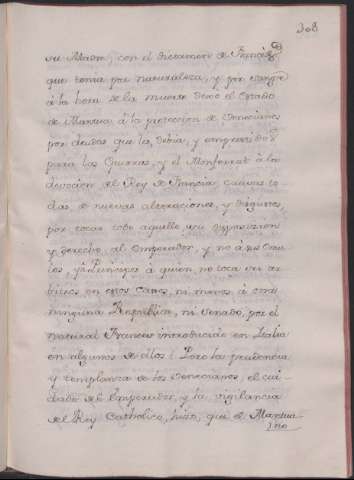 308
su Madre, con el dictamen de Francés
que tenia por naturaleza, y por sangre
á la hora de la muerte dexó el Estado
de Mantua á la proteccion de Venecianos
por deudas que les debia, y empréstidos
para las Guerras, y el Monferrat á la
devocion del Rey de Francia, causas to-
das de nuevas alteraciones, y disgustos,
por tocar todo aquello su disposicion
y derecho al Emperador, y no á
ni Principes á quien no toca ser ar-
bitros en esos casos, ni menos á
ninguna Republica, ni Senado, por el
natural Frances introducido en Italia
en algunos de ellos: Pero la prudencia
y templanza de los Venecianos, el cui-
dado del Emperador, y la vigilancia
del Rey Catholico, hizo, que el Mantua
no